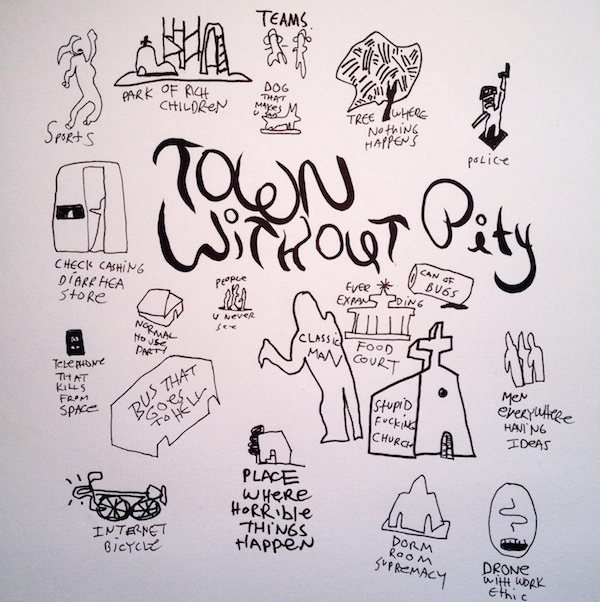 TEAMS
SPORTS
PARK OF RICH
CHILDREN
DOG
THAT
MAKES
U SAD
TREE WHERE
NOTHING
HAPPENS
POLICE
TOWN
WITHOUT PITY
CHECK CASHING
DIARRHEA
STORE
NORMAL
HOUSE
PARTY
PEOPLE
U NEVER
SEE
EVER
EXPANDING
FOOD
COURT
CAN OF
BUGS
CLASSIC
MAN
TELEPHONE
THAT
KILLS
FROM
SPACE
BUS THAT
GOES
TO HELL
STUPID
FUCKING
CHURCH
MEN
EVERYWHERE
HAVING
IDEAS
INTERNET
BICYCLE
PLACE
WHERE
HORRIBLE
THINGS
HAPPEN
DORM
ROOM
SUPREMACY
DRONE
WITH WORK
ETHIC